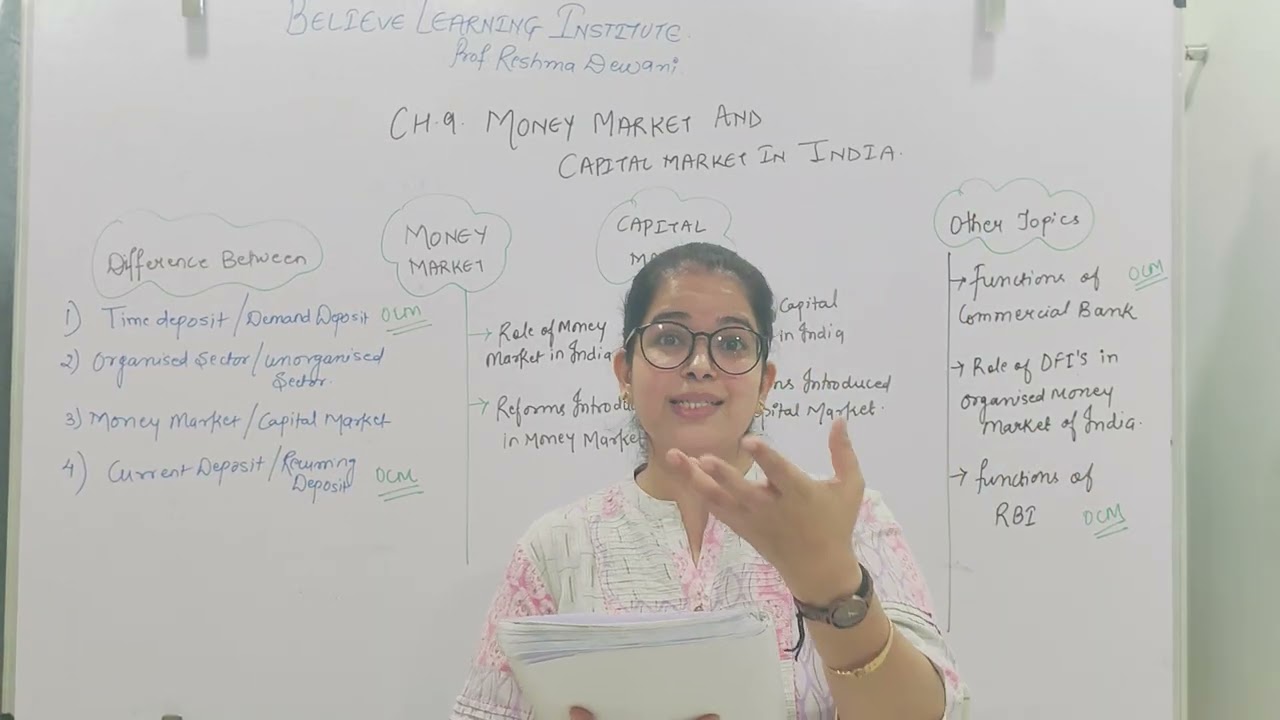 BELIEVE LEARNING INSTITUTE.
Prof Reshma Dewani
CH.9. MONEY MARKET AND
CAPITAL MARKET IN INDIA.
Difference Between
1) Time deposit / Demand Deposit OCM
2) Organised Sector / unorganised
Sector.
3) Money Market / Capital Market
4) Current Deposit / Recurring
Deposit OCM
MONEY
MARKET
→ Role of Money
Market in India
→ Reforms
in Money Market
CAPITAL
Capital
in India
Introduced
Market.
Other Topics
→ functions of OCM
Commercial Bank
→ Role of DFI'S in
organised Money
Market of India.
→ functions of
RBI OCM